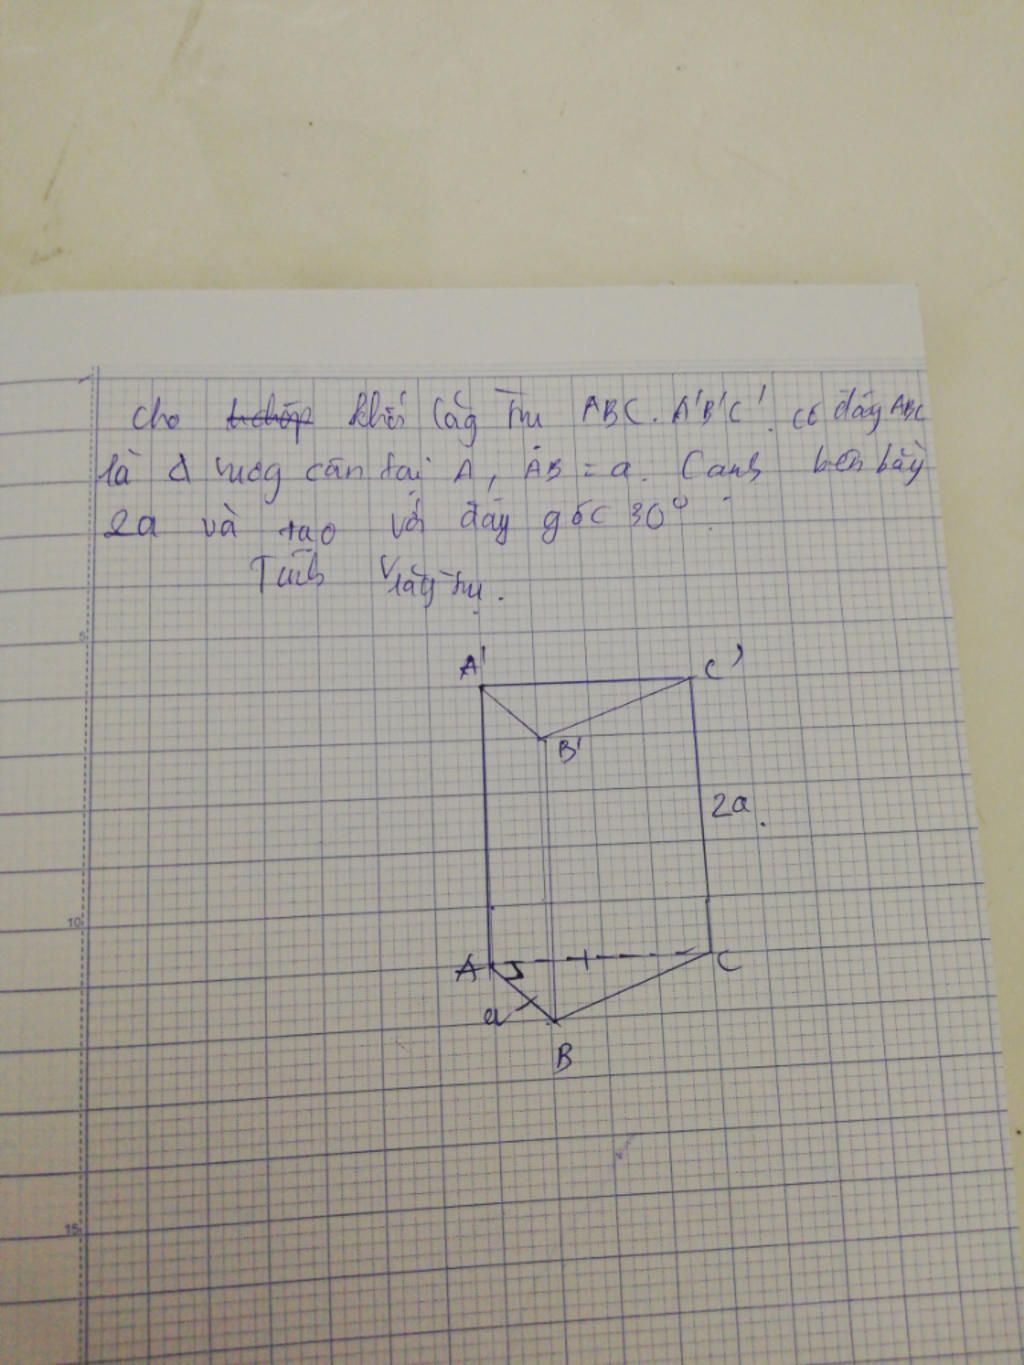 Cho khối lăg trụ ABC.A'B'C' có đáy ABC
là Δ vuôg cân tại A, AB = a. Cạnh bên bằg
2a và tạo với đáy góc 30°.
Tính V lăg trụ.
A'
C'
B'
2a.
A
C
a
B
5
10
15